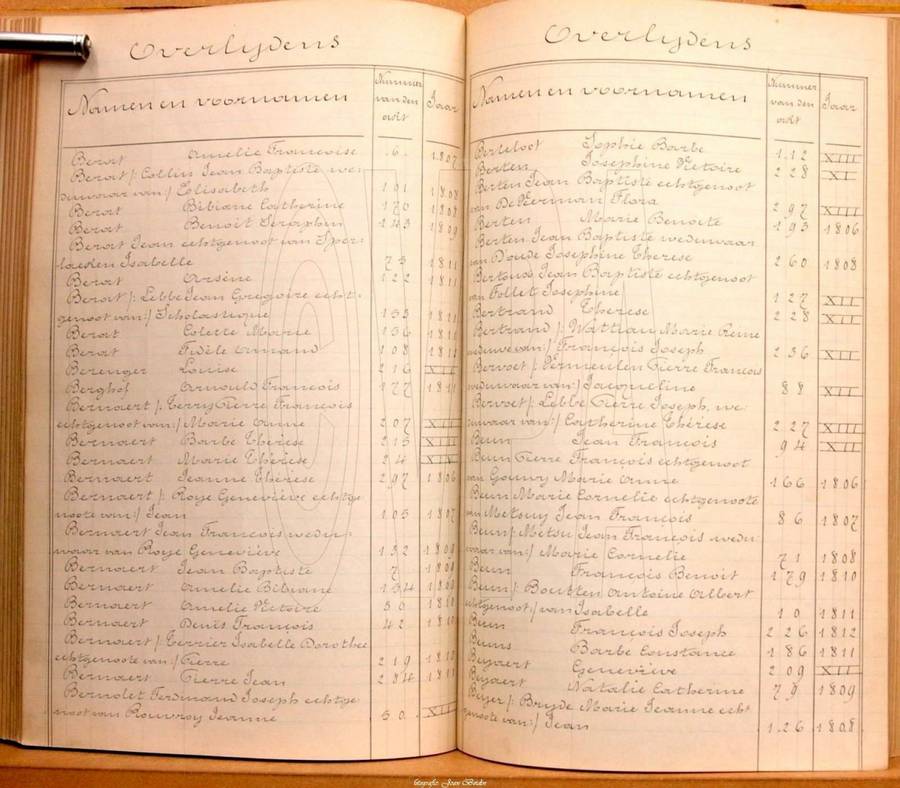 Overlijdens
Namen en voornamen
Nummer van den acte
Jaar
Berat Amelie Françoise 6. 1807
Berat /: Collin Jean Baptiste we-
duwaar van :/ Elisabeth 191 1808
Berat Bibiane Catherine 170 1808
Berat Benoit Seraphin 143 1809
Berat Jean echtgenoot van Sper-
laeken Isabelle 73 1811
Berat Arsène 122 1811
Berat /: Lebbe Jean Gregoire echt-
genoot van :/ Scholastique 133 1811
Berat Colette Marie 136 1811
Berat Fidèle Amand 108 1811
Berenger Louise 216 XIII
Berghof Arnould François 177 1811
Bernaert /: Terry Pierre François
echtgenoot van :/ Marie Anne 207 XIII
Bernaert Barbe Thérèse 215 XIII
Bernaert Marie Thérèse 24 XIII
Bernaert Jeanne Thérèse 297 1806
Bernaert /: Roye Geneviève echtge-
noote van :/ Jean 105 1807
Bernaert Jean François wedu-
waar van Roye Geneviève 132 1809
Bernaert Jean Baptiste 7 1809
Bernaert Amelie Bibiane 134 1809
Bernaert Amelie Victoire 30 1810
Bernaert Denis François 42 1810
Bernaert /: Terrier Isabelle Dorothee
echtgenoote van :/ Pierre 219 1810
Bernaert Pierre Jean 284 1811
Bernolet Ferdinand Joseph echtge-
noot van Rouvroy Jeanne 50. XII
Overlijdens
Namen en voornamen
Nummer van den acte
Jaar
Berteloot Sophie Barbe 112 XIII
Berten Josephine Victoire 228 XI
Berten Jean Baptiste echtgenoot
van De Verman Flora 297 XIII
Berten Marie Benoite 193 1806
Berten Jean Baptiste weduwaar
van Doude Josephine Thérèse 260 1808
Bertoud Jean Baptiste echtgenoot
van Follet Josephine 127 XII
Bertrand Thérèse 228 XII
Bertrand /: Wattiau Marie Reine
weduwe van :/ François Joseph 236 XII
Bervoet /: Vermeulen Pierre François
weduwaar van :/ Jacqueline 88 XII
Bervoet /: Lebbe Pierre Joseph, we-
duwaar van :/ Catherine Thérèse 227 XIII
Beun Jean François 94 XII
Beun Pierre François echtgenoot
van Gouwy Marie Anne 166 1806
Beun Marie Cornelie echtgenoote
van Metsuy Jean François 86 1807
Beun /: Metsu Jean François wedu-
waar van :/ Marie Cornelie 71 1808
Beun François Benoit 179 1810
Beun /: Boutten Antoine Albert
echtgenoot :/ van Isabelle 10 1811
Beun François Joseph 226 1812
Beuns Barbe Constance 186 1811
Beyaert Geneviève 209 XII
Beyaert Natalie Catherine 79 1809
Beyer /: Bryde Marie Jeanne echt-
genoote van :/ Jean 126 1808
fotografie: Joan Bardin